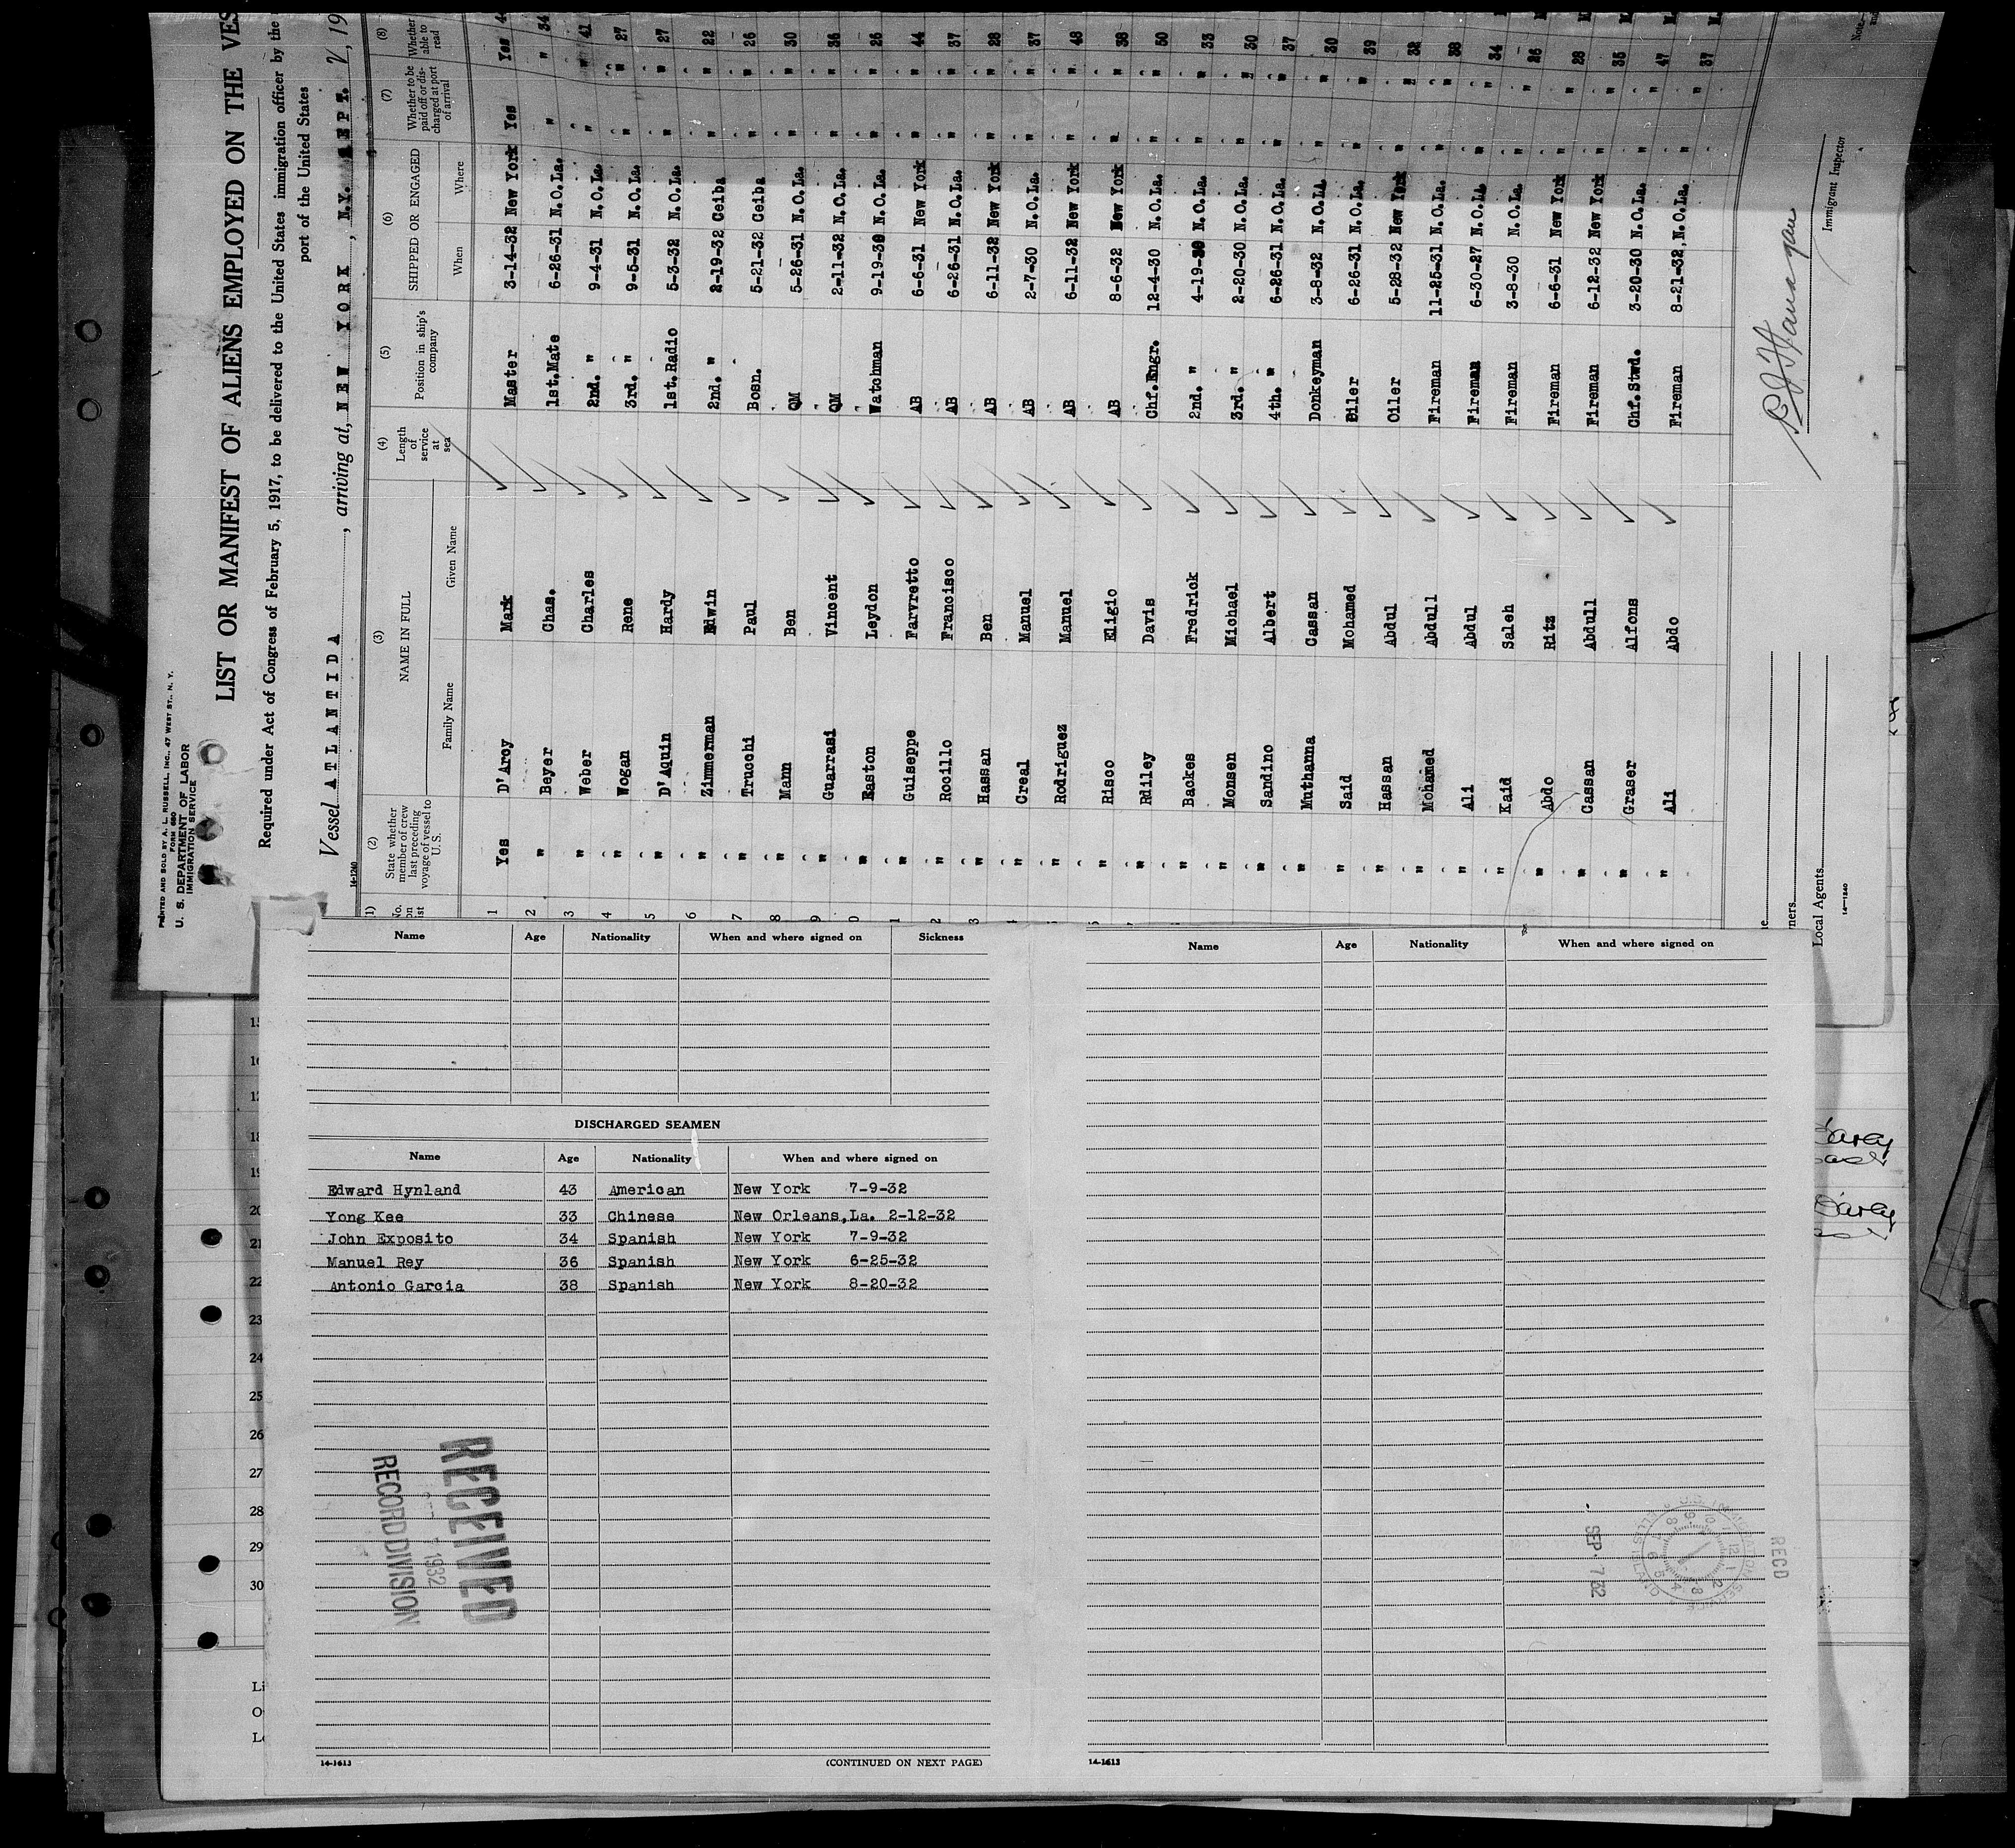 PRINTED AND SOLD BY A. L. RUSSELL, INC., 47 WEST ST., N. Y.
FORM 680
U. S. DEPARTMENT OF LABOR
IMMIGRATION SERVICE
LIST OR MANIFEST OF ALIENS EMPLOYED ON THE VES
Required under Act of Congress of February 5, 1917, to be delivered to the United States immigration officer by the
port of the United States
Vessel ATLANTIDA, arriving at, NEW YORK, N.Y. SEPT. , 19
14-1240
(1) No. on list (2) State whether member of crew last preceding voyage of vessel to U.S. (3) NAME IN FULL (4) Length of service at sea (5) Position in ship's company (6) SHIPPED OR ENGAGED (7) Whether to be paid off or discharged at port of arrival (8) Whether able to read
Family Name Given Name When Where
1 Yes D'Arcy Mark Master 3-14-32 New York Yes Yes 4
2 " Beyer Chas. 1st.Mate 6-26-31 N.O.La. " " 34
3 " Weber Charles 2nd. " 9-4-31 N.O.La. " " 41
4 " Wogan Rene 3rd. " 9-5-31 N.O.La. " " 27
5 " D'Aquin Hardy 1st.Radio 5-3-32 N.O.La. " " 27
6 " Zimmerman Edwin 2nd. " 2-19-32 Ceiba " " 22
7 " Trucchi Paul Bosn. 5-21-32 Ceiba " " 26
8 " Mann Ben QM 5-26-31 N.O.La. " " 30
9 " Guarrasi Vincent QM 2-11-32 N.O.La. " " 36
0 " Easton Leydon Watchman 9-19-30 N.O.La. " " 26
1 " Guiseppe Farvretto AB 6-6-31 New York " " 44
2 " Rocillo Francisco AB 6-26-31 N.O.La. " " 37
3 " Hassan Ben AB 6-11-32 New York " " 28
" Creal Manuel AB 2-7-30 N.O.La. " " 37
" Rodriguez Manuel AB 6-11-32 New York " " 48
" Risco Eligio AB 8-6-32 New York " " 38
" Rdiley Davis Chf.Engr. 12-4-30 N.O.La. " " 50
" Backes Fredrick 2nd. " 4-19-30 N.O.La. " " 33
" Monsen Michael 3rd. " 2-20-30 N.O.La. " " 30
" Sandino Albert 4th. " 6-26-31 N.O.La. " " 37
" Muthanna Cassan Donkeyman 3-8-32 N.O.LA " " 30
" Said Mohamed Oiler 6-26-31 N.O.La. " " 39
" Hassan Abdul Oiler 5-28-32 New York " " 32
" Mohamed Abdull Fireman 11-25-31 N.O.La. " " 38
" Ali Abdul Fireman 6-30-27 N.O.LA " " 34
" Kaid Saleh Fireman 3-8-30 N.O.La. " " 26
" Abdo Ritz Fireman 6-6-31 New York " " 28
" Cassan Abdull Fireman 6-12-32 New York " " 35
" Graser Alfons Chf.Stwd. 3-20-30 N.O.La. " " 47
" Ali Abdo Fireman 8-21-32, N.O.La. " " 37
Immigrant Inspector
Note.
Local Agents
14-1240
Name Age Nationality When and where signed on Sickness
DISCHARGED SEAMEN
Name Age Nationality When and where signed on
Edward Hynland 43 American New York 7-9-32
Yong Kee 33 Chinese New Orleans,La. 2-12-32
John Exposito 34 Spanish New York 7-9-32
Manuel Rey 36 Spanish New York 6-25-32
Antonio Garcia 38 Spanish New York 8-20-32
RECEIVED
1932
RECORD DIVISION
14-1613
(CONTINUED ON NEXT PAGE)
Name Age Nationality When and where signed on
RECD
U.S. IMMIGRATION SERVICE
ELLIS ISLAND
SEP. 7 32
14-1613
18
19
20
21
22
23
24
25
26
27
28
29
30